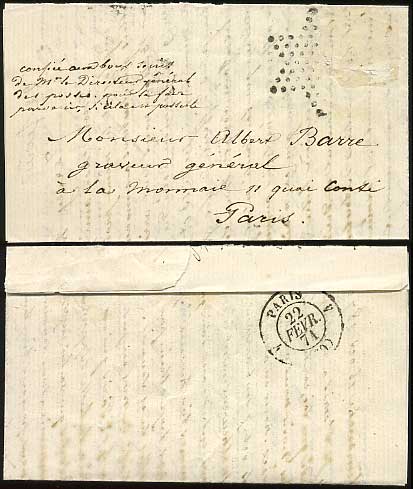 confiée aux bons soins
de Mr le Directeur général
des postes pour la faire
parvenir, si cela est possible
Monsieur Albert Barre
graveur général
à la monnaie 11 quai Conti
Paris.
PARIS
22
FEVR.
71